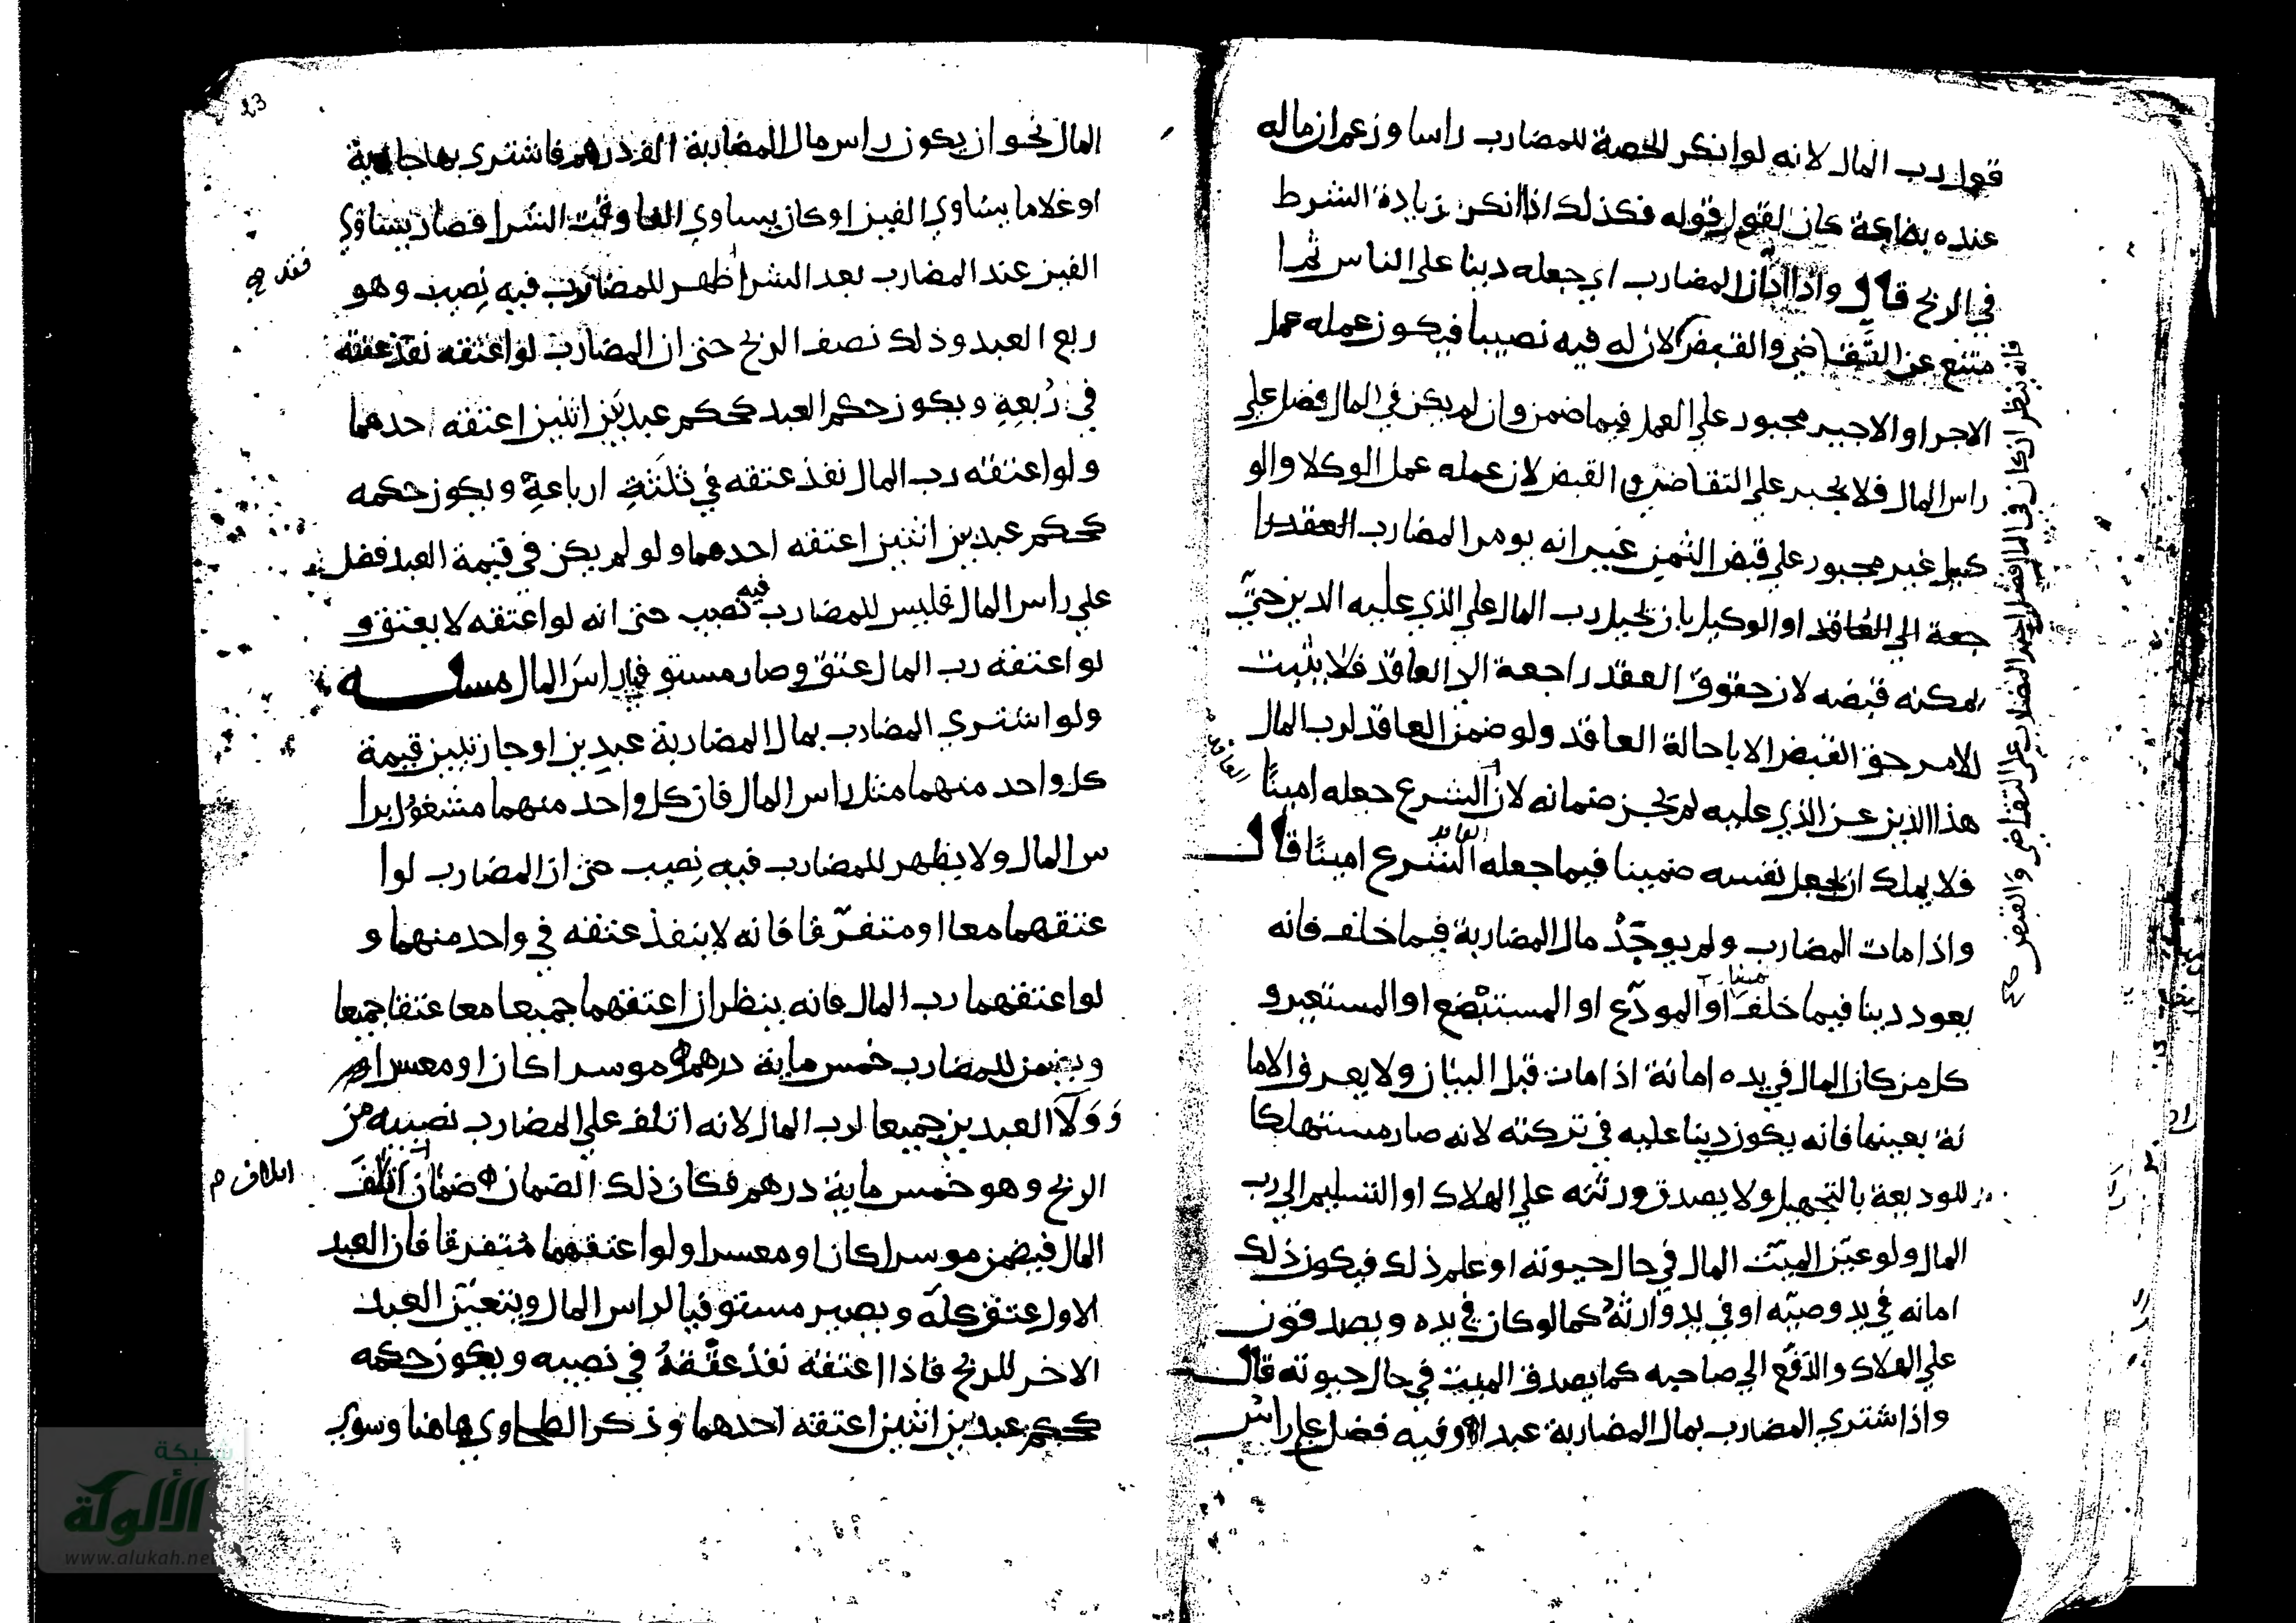 قول رب المال لانه لو انكر الحصة للمضارب راسا وزعم ان ماله
عنده بضاعة كان القول قوله فكذلك اذا انكر زيادة الشرط
في الربح قال واذا ادّان المضارب اي جعله دينا على الناس ثم ا
متنع عن التقاضي والقبض لان له فيه نصيبا فيكون عمله عمل
الاجرا والاجير مجبور علي العمل فيما ضمن وان لم يكن في المال فضل علي
راس المال فلا يجبر علي التقاضي والقبض لان عمله عمل الوكلا والو
كيل غير مجبور علي قبض الثمن غير انه يومر المضارب العقد را
جعة الي العاقد او الوكيل بان يحيل رب المال علي الذي عليه الدين حتّي
يمكنه قبضه لان حقوق العقد راجعة الي العاقد فلا يثبت
للامر حق القبض الا باحالة العاقد ولو ضمن العاقد لرب المال
هذا الدين عن الذي عليه لم يجز ضمانه لان الشرع جعله امينًا
العاقد
فلا يملك ان يجعل نفسه ضمينا فيما جعله الشرع امينًا قال
واذا مات المضارب ولم يوجد مال المضاربة فيما خلف فانه
يعود دينا فيما خلف او المودَع او المستبضع او المستعير و
كل من كان المال في يده امانة اذا مات قبل البيان ولا يعرف الاما
نة بعينها فانه يكون دينا عليه في تركته لانه صار مستهلكا
للوديعة بالتجهيل ولا يصدق ورثته علي الهلاك او التسليم الي رب
المال ولو عيّن الميّت المال في حال حيوته او علم ذلك فيكون ذلك
امانه في يد وصيّه او في يد وارثه كما لو كان في يده ويصدقون
علي الهلاك والدّفع الي صاحبه كما يصدق الميت في حال حيوته قال
واذا اشتري المضارب بمال المضاربة عبدا وفيه فضل علي راس
فانه ينظر ان كان في المال فضل اجبر المضارب علي التقاضي والقبض صح
المال نحو ان يكون راس مال المضاربة الف درهم فاشتري بها جارية
او غلاما يساوي الفين او كان يساوي الفا وقت الشرا فصار يساوي
الفين عند المضارب بعد الشرا ظهر للمضارب فيه نصيب وهو
ربع العبد وذلك نصف الربح حتي ان المضارب لو اعتقه نفذ عتقه
في رُبعِهِ ويكون حكم العبد كحكم عبد بين اثنين اعتقه احدهما
ولو اعتقه رب المال نفذ عتقه في ثلثة ارباعه ويكون حكمه
كحكم عبد بين اثنين اعتقه احدهما ولو لم يكن في قيمة العبد فضل
علي راس المال فليس للمضارب فيه نصيب حتي انه لو اعتقه لا يعتق و
لو اعتقه رب المال عتق وصار مستوفيا راس المال مسله
ولو اشتري المضارب بمال المضاربة عبدين او جاريتين قيمة
كل واحد منهما مثل راس المال فان كل واحد منهما مشغول برا
س المال ولا يظهر للمضارب فيه نصيب حتي ان المضارب لو ا
عتقهما معا او متفرّقا فانه لا ينفذ عتقه في واحد منهما و
لو اعتقهما رب المال فانه ينظر ان اعتقهما جميعا معا عتقا جميعا
ويضمن للمضارب خمس ماية درهم موسرا كان او معسرا
وَوَلَآ العبدين جميعا لرب المال لانه اتلف علي المضارب نصيبه من
الربح وهو خمس ماية درهم فكان ذلك الضمان ضمان اتلف
اتلاف م
المال فيضمن موسرا كان او معسرا ولو اعتقهما متفرقا فان العبد
الاول عتق كله ويصير مستوفيا لراس المال ويتعيّن العبد
الاخر للربح فاذا اعتقه نفذ عتقهُ في نصيبه ويكون حكمه
كحكم عبد بين اثنين اعتقه احدهما وذكر الطحاوي هاهنا وسوي
شبكة
الألوكة
www.alukah.net